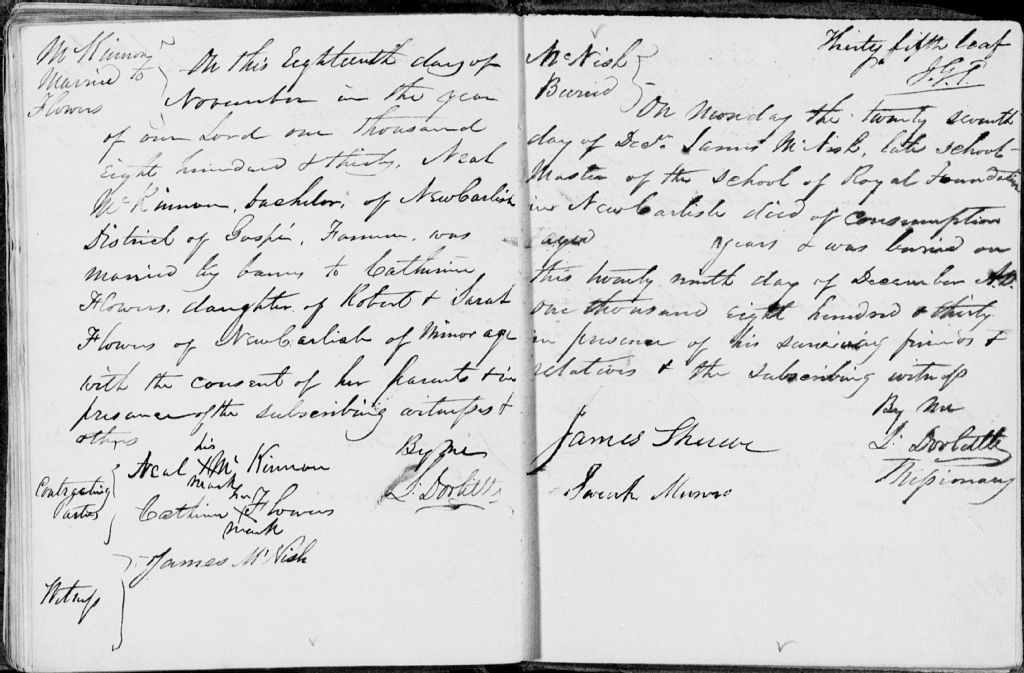 McKinnon
Married to
Flowers
On this Eighteenth day of
November in the year
of our Lord one thousand
Eight hundred & thirty, Neal
McKinnon, bachelor, of New Carlisle
District of Gaspé, Farmer, was
married by banns to Catherine
Flowers, daughter of Robert & Sarah
Flowers of New Carlisle of Minor age
with the consent of her parents & in
presence of the subscribing witnesses &
others
Contracting
Parties
his
Neal X McKinnon
mark
her
Catherine X Flowers
mark
By me
Witness
James McNish
Thirty fifth leaf
McNish
Buried
On Monday the twenty seventh
day of Decr. James McNish, late school-
Master of the school of Royal Foundation
in New Carlisle died of consumption
aged years & was buried on
this twenty ninth day of December A.D.
one thousand eight hundred & thirty
in presence of his surviving friends &
relatives & the subscribing witness
By me
James
Munro
Missionary